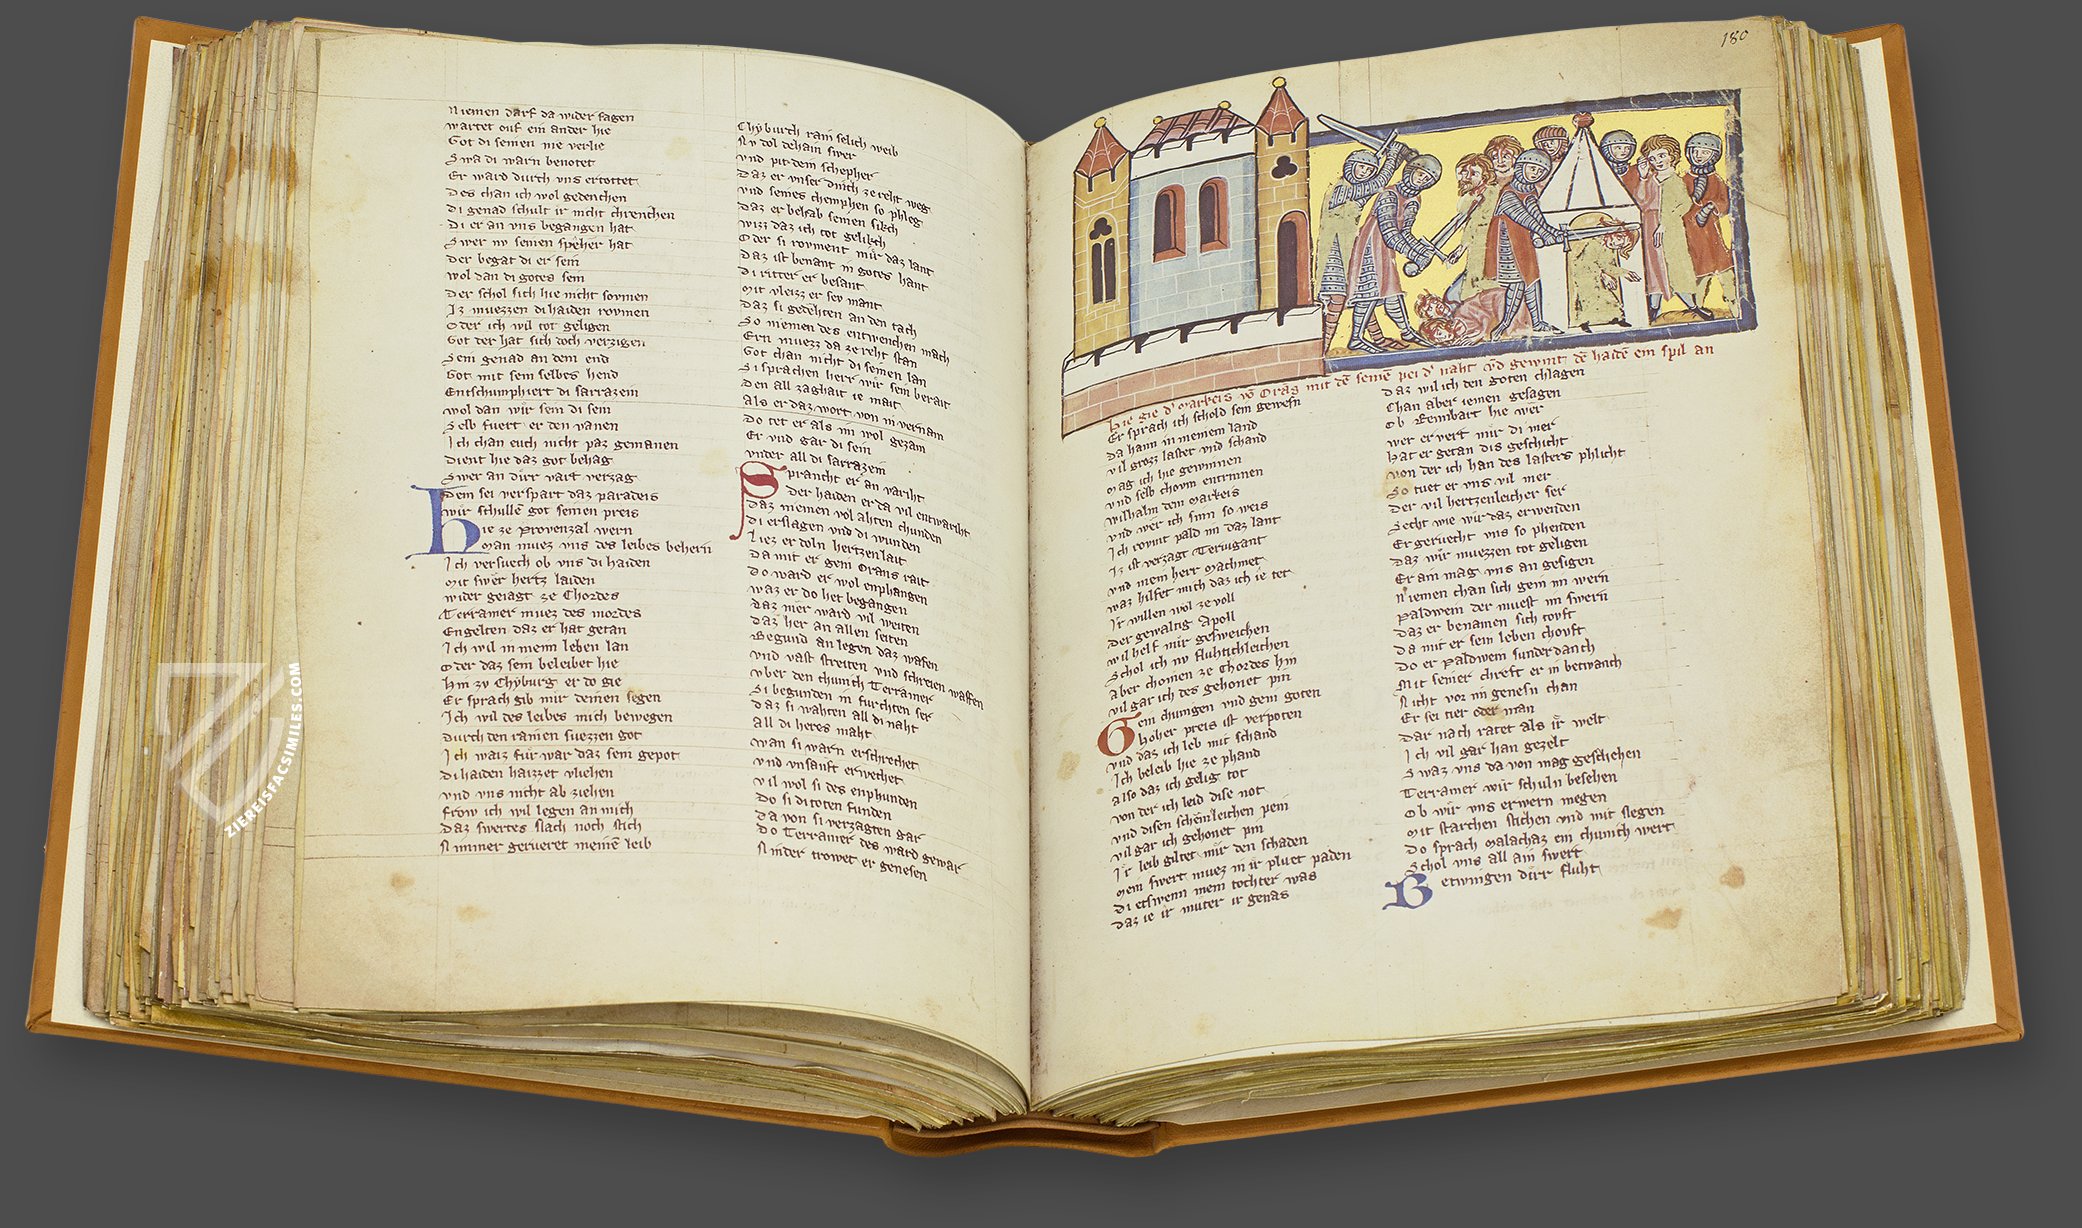 Niemen darf da wider sagen
wartet ouf ein ander hie
Got di seinen nie verlie
Swa di warn benotet
Er ward durch vns ertottet
Des chan ich wol gedenchen
Di genad schult ir nicht chrenchen
Di er an vns begangen hat
Swer nv seinen speher hat
Der begat di er sein
Wol dan di gotes sein
Der schol sich hie nicht sovmen
Iz muezzen di haiden rovmen
Oder ich wil tot geligen
Got der hat sich doch verzigen
Sein genad an dem end
Got mit sein selbes hend
Entschumphiert di sarrazein
wol dan wir sein di sein
Selb fuert er den vanen
Ich chan euch nicht paz gemanen
Dient hie daz got behag
Swer an dirr vart verzag
Dem sei verspart daz paradeis
wir schullē got seinen preis
Hie ze Provenzal wern
Man muez vns des leibes behern
Ich versuech ob vns di haiden
Mit swer hertz laiden
wider geiagt ze Chordes
Terramer muez des mordes
Engelten daz er hat getan
Ich wil in mein leben lan
Oder daz sein beleibet hie
Hin zv Chyburg er do gie
Er sprach gib mir deinen segen
Ich wil des leibes mich bewegen
Durch den rainen suezzen got
Ich waiz fur war daz sein gepot
Di haiden haizzet vliehen
vnd vns nicht ab ziehen
frow ich wil legen an mich
Daz swertes slach noch stich
Nimmer gerueret meinē leib
Chyburch rain selich weib
Nv dol dehain swer
vnd pit dem schepher
Daz er vnser durch ze reht weg
vnd seines chemphen so phleg
Daz er behab seinen sikch
wizz daz ich tot gelikch
Oder si rovment mir daz lant
Daz ist benant in gotes hant
Di ritter er besant
Mit vleizz er sev mant
Daz si gedehten an den tach
So niemen des entwenchen mach
Ern muezz da ze reht stan
Got chan nicht di seinen lan
Si sprachen herr wir sein berait
Den all zaghait ie mait
Als er daz wort von in vernam
Do tet er als im wol gezam
Er vnd gar di sein
vnder all di sarrazein
Sprancht er an variht
Der haiden er da vil entwariht
Daz niemen vol ahten chunden
Di erslagen vnd di wunden
Liez er doln hertzenlait
Da mit er gein Orans rait
Do ward er wol enphangen
waz er do het begangen
Daz mer ward vil weiten
Daz her an allen seiten
Begund an legen daz wafen
vnd vast streiten vnd schreien waffen
vber den chunich Terramer
Si begunden in furchten ser
Daz si wahten all di naht
all di heres maht
wan si warn erschrechet
vnd vnsanft erwechet
vil wol si des enphunden
Do si di toten funden
Da von si verzagten gar
Do Terramer des ward gewar
Ninder trowet er genesen
180
Hie gie d' Markeis vō Orās mit dē seinē bei d' naht vn̄d gewint dē haidē ein spil an
Er sprach ich schold sein gewesn
Da haim in meinem land
vil grozz laster vnd schand
Mag ich hie gewinnen
vnd selb chovm entrinnen
wilhalm dem Markeis
vnd wer ich sinn so weis
Ich rovmt pald im daz lant
Iz ist verzagt Terugant
vnd mein herr Machmet
waz hilfet mich daz ich ie tet
Ir willen wol ze voll
Der gewaltig Apoll
wil helf mir gesweichen
Schol ich nv fluhtichleichen
aber chomen ze Chordes hin
vil gar ich des gehonet pin
Gein chungen vnd gein goten
Hoher preis ist verpoten
vnd daz ich leb mit schand
Ich beleib hie ze phand
also daz ich gelig tot
von der ich leid dise not
vnd disen schenleichen pein
vil gar ich gehonet pin
Ir leib giltet mir den schaden
Mein swert muez in ir pluet paden
Di etswenn mein tochter was
Daz ie ir muter ir genas
Daz wil ich den goten chlagen
Chan aber iemen gesagen
Ob Rennbart hie wer
wer er vert mir di mer
Hat er getan dis geschicht
von der ich han des lasters phlicht
So tuet er vns vil mer
Der vil hertzenleicher ser
Secht wie wir daz erwenden
Er geruecht vns so phenden
Daz wir muezzen tot geligen
Er ain mag vns an gesigen
Niemen chan sich gein im wern
Paldwein der muest im swern
Daz er benamen sich tovft
Da mit er sein leben chovft
Do er Paldwein sunder danch
Mit seiner chreft er in betwanch
Nicht vor im genesn chan
Er sei tier oder man
Dar nach ratet als ir welt
Ich vil gar han gezelt
Swaz vns da von mag geschehen
Terramer wir schuln besehen
Ob wir vns erwern megen
Mit starchen stichen vnd mit slegen
Do sprach Malachaz ein chunich wert
Schol vns all ain swert
Betwingen dirr fluht
ZIEREISFACSIMILES.COM